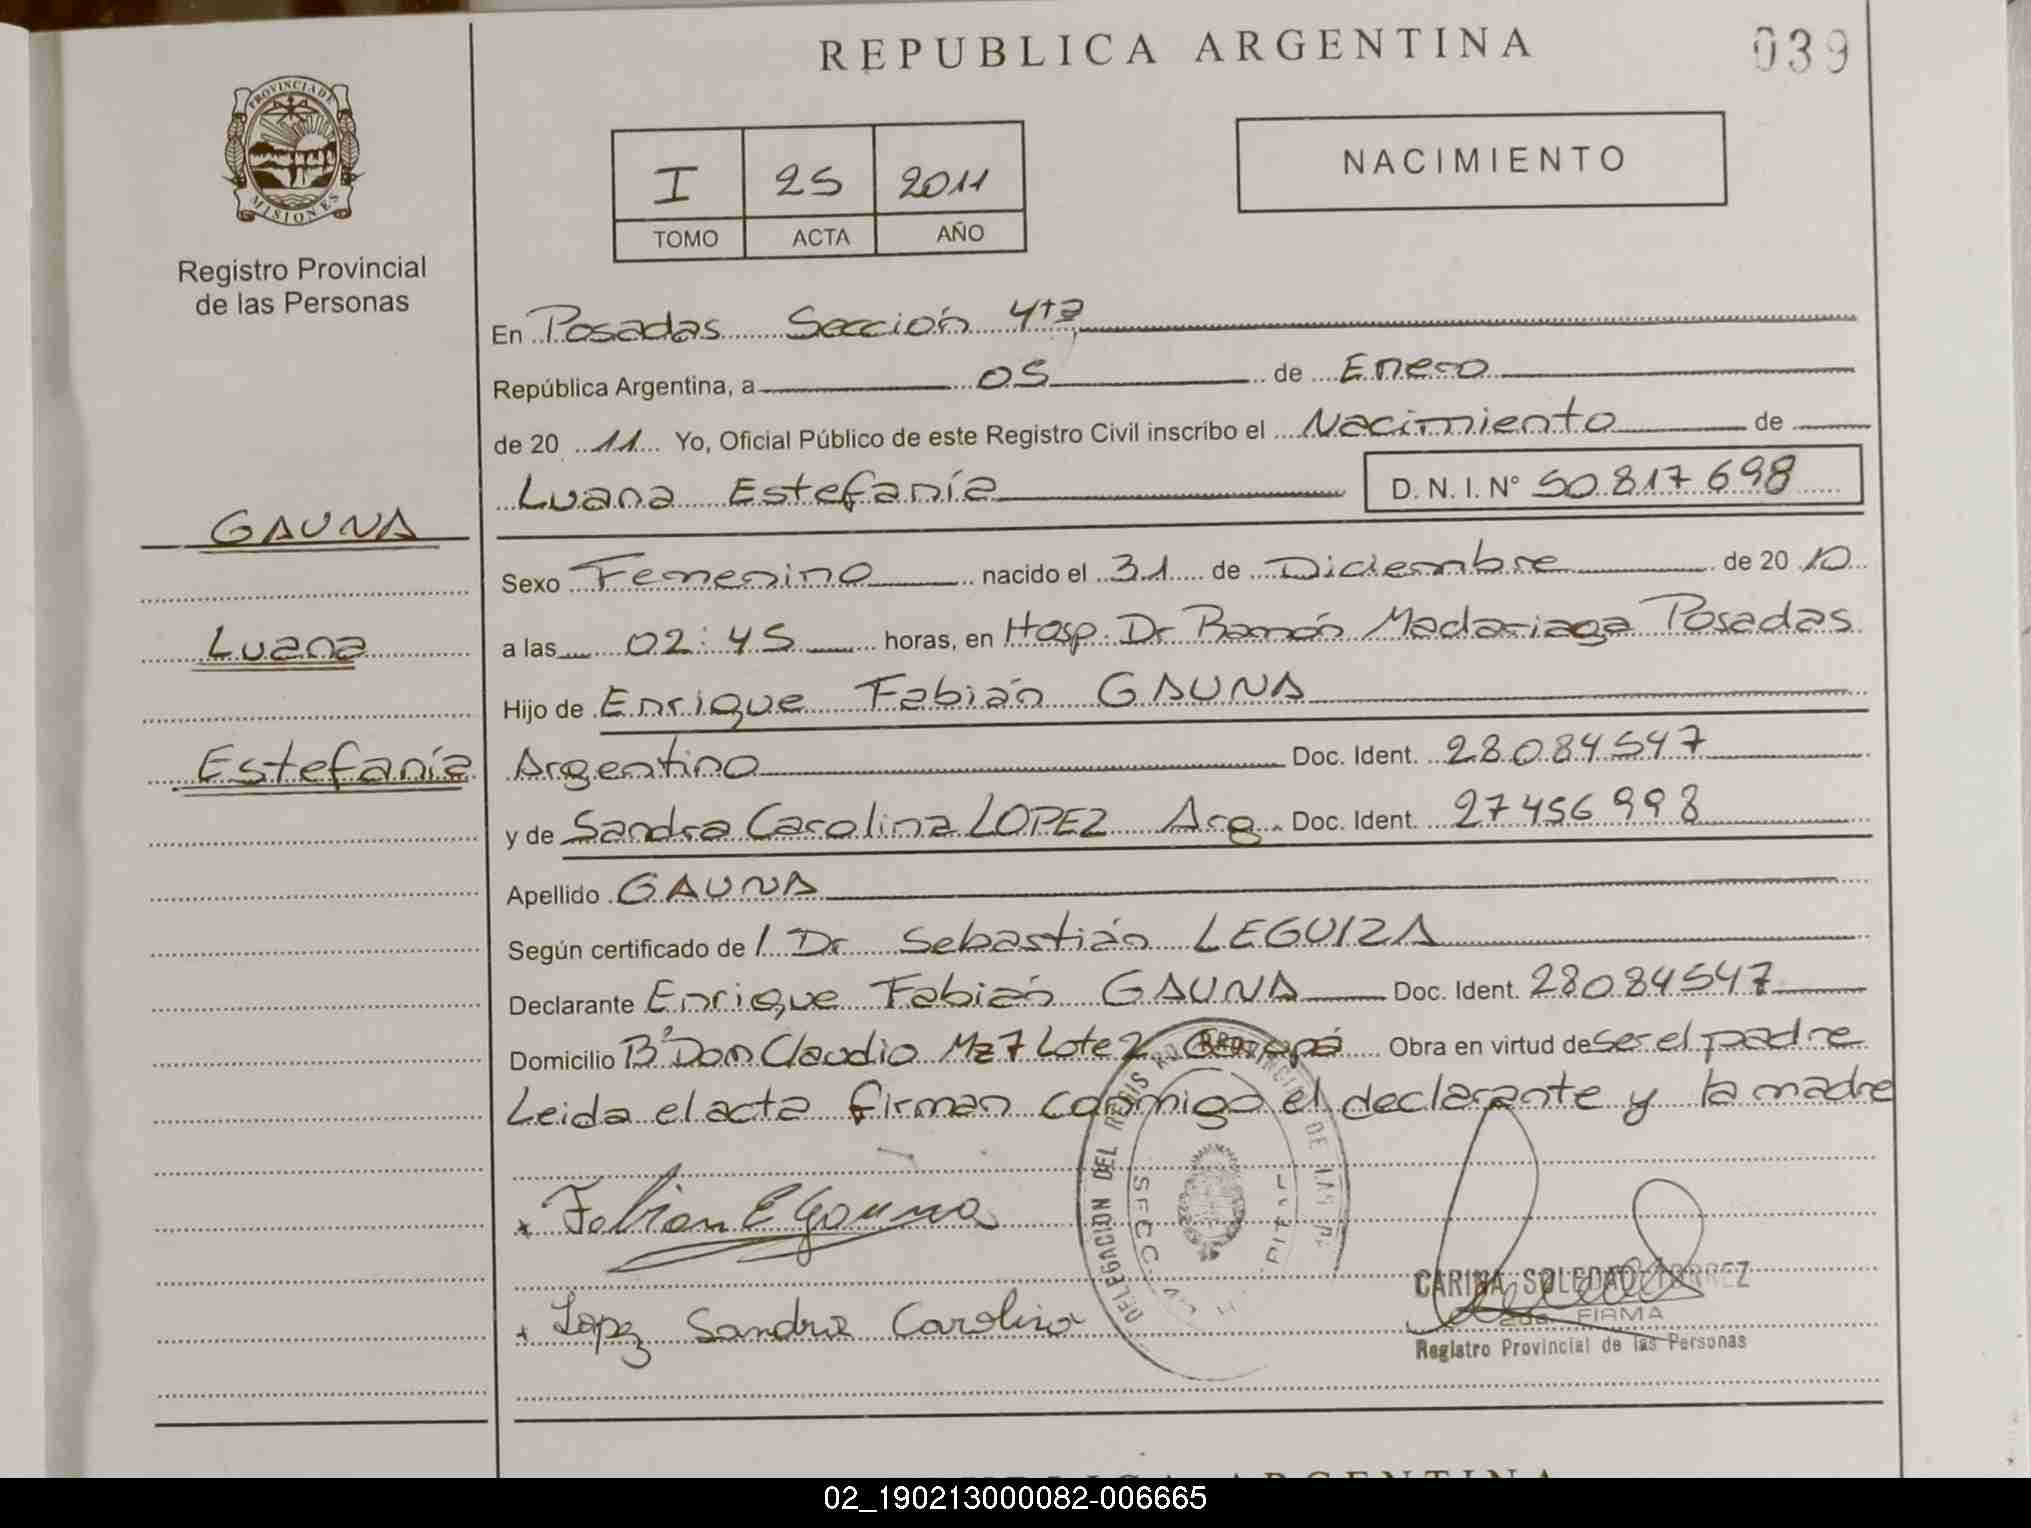 REPUBLICA ARGENTINA
039
PROVINCIA DE
MISIONES
Registro Provincial
de las Personas
I 25 2011
TOMO ACTA AÑO
NACIMIENTO
En Posadas Sección 4ta
República Argentina, a 05 de Enero
de 20 11 Yo, Oficial Público de este Registro Civil inscribo el Nacimiento de
Luana Estefanía D. N. I. N° 50 817 698
GAUNA
Luana
Estefanía
Sexo Femenino nacido el 31 de Diciembre de 20 10
a las 02:45 horas, en Hosp. Dr Ramón Madariaga Posadas
Hijo de Enrique Fabián GAUNA
Argentino Doc. Ident. 28084547
y de Sandra Carolina LOPEZ Arg. Doc. Ident. 27456998
Apellido GAUNA
Según certificado de / Dr Sebastián LEGUIZA
Declarante Enrique Fabián GAUNA Doc. Ident. 28084547
Domicilio B° Don Claudio Mz 7 Lote 2 Obra en virtud de ser el padre
Leida el acta firman conmigo el declarante y la madre
Fabian E Gauna
Lopez Sandra Carolina
DELEGACION DEL REGISTRO PROVINCIAL DE LAS
CARINA SOLEDAD TORREZ
2da. FIRMA
Registro Provincial de las Personas
02_190213000082-006665